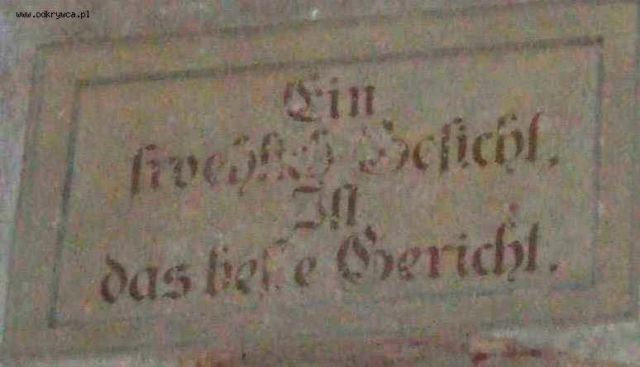 www.odkrywca.pl
Ein
froehlich Gesicht,
Ist
das beste Gericht.